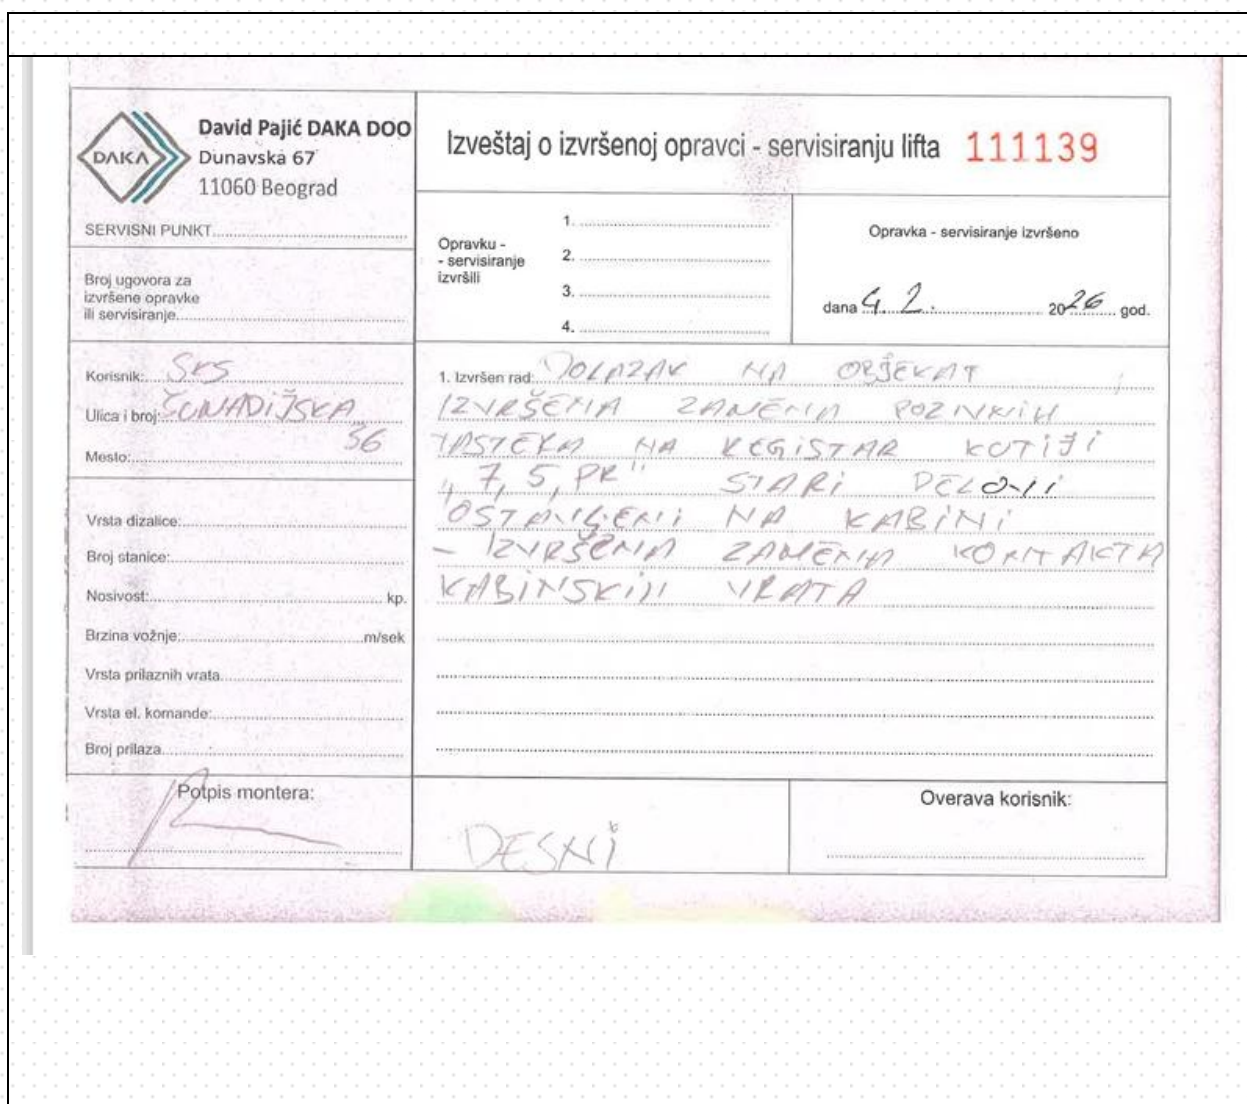 DAKA
David Pajić DAKA DOO
Dunavska 67
11060 Beograd
SERVISNI PUNKT
Izveštaj o izvršenoj opravci - servisiranju lifta 111139
Broj ugovora za
izvršene opravke
ili servisiranje
Opravku -
- servisiranje
izvršili
1.
2.
3.
4.
Opravka - servisiranje izvršeno
dana 4. 2. 2026 god.
Korisnik: SKS
Ulica i broj:
36
Mesto:
Vrsta dizalice:
Broj stanice:
Nosivost: kp.
Brzina vožnje: m/sek
Vrsta prilaznih vrata
Vrsta el. komande:
Broj prilaza
1. Izvršen rad: DOLAZAK NA OBJEKAT
IZVRŠENA ZAMENA POZIVNIH
TASTERA NA REGISTAR KUTIJI
„7, 5, PR" STARI DELOVI
OSTAVLJENI NA KABINI
- IZVRŠENA ZAMENA KONTAKTA
KABINSKIH VRATA
Potpis montera:
DESNI
Overava korisnik: